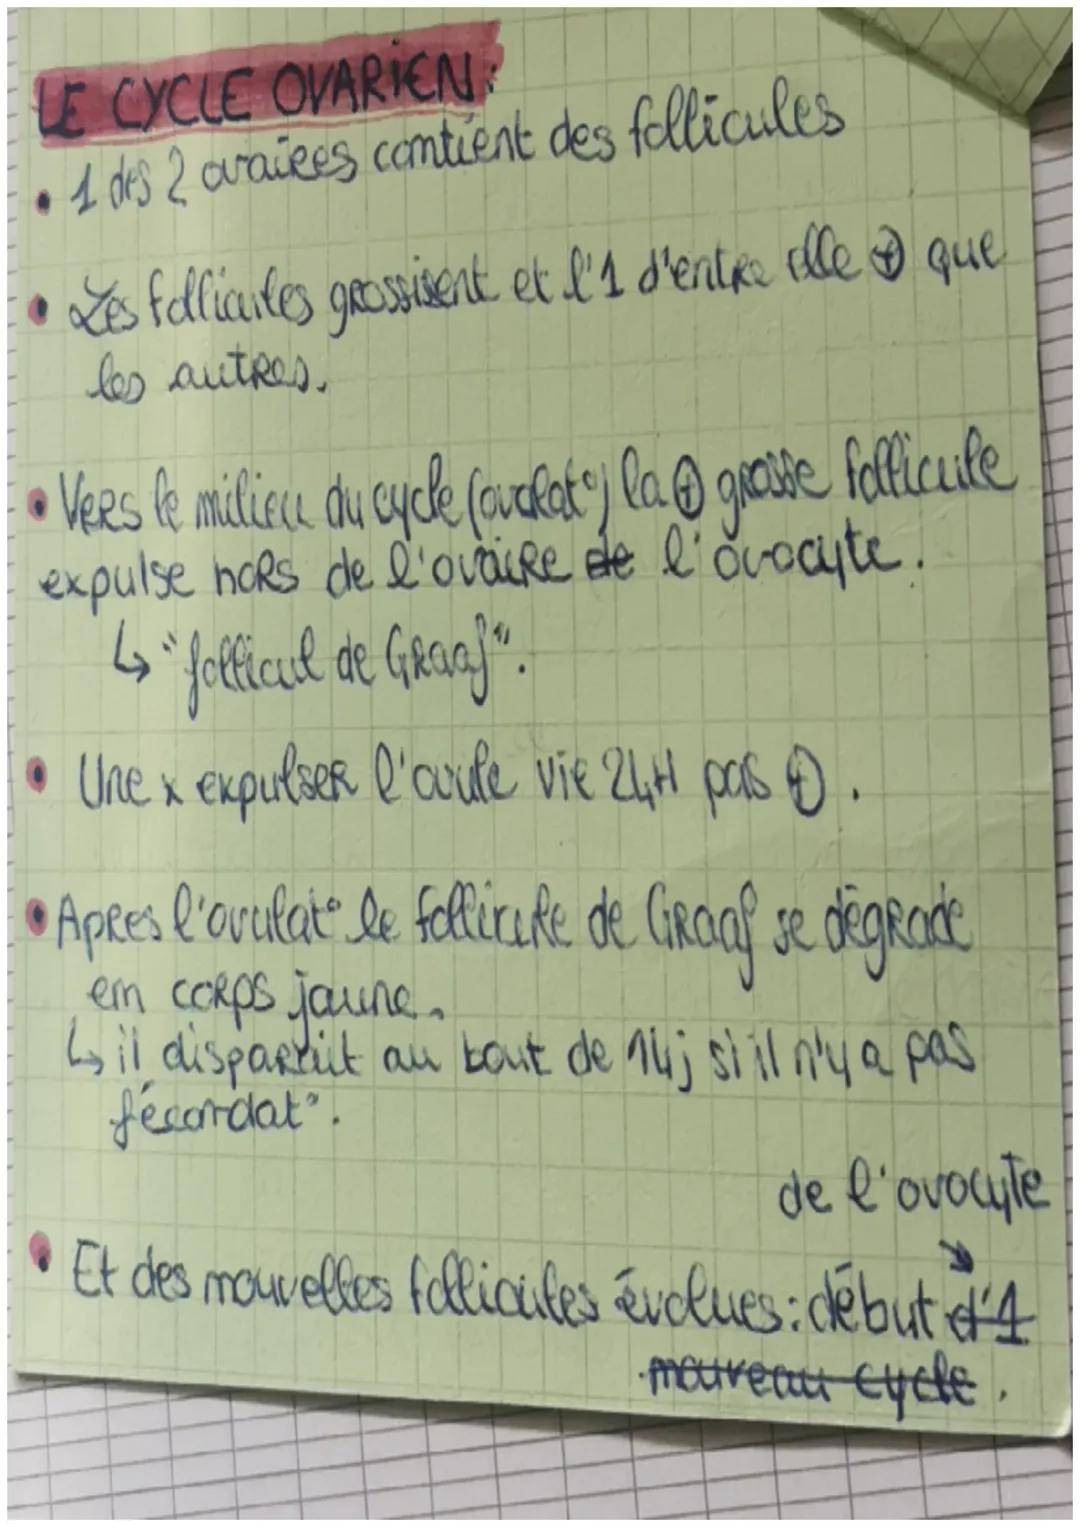 LE CYCLE OVARIEN:
• 1 des 2 ovaires contient des follicules
• Les follicules grossisent et l'1 d'entre elle ⊕ que
les autres.
• Vers le milieu du cycle (ovulat°) la ⊕ grosse follicule
expulse hors de l'ovaire de l'ovocyte.
↳ "follicul de Graaf".
• Une x expulser l'ovule vie 24H pas ⊕.
• Apres l'ovulat° le follicule de Graaf se dégrade
en corps jaune.
↳ il disparait au bout de 14j si il n'y a pas
fécondat°.
de l'ovocyte
• Et des nouvelles follicules évolues: début d'1
nouveau cycle.